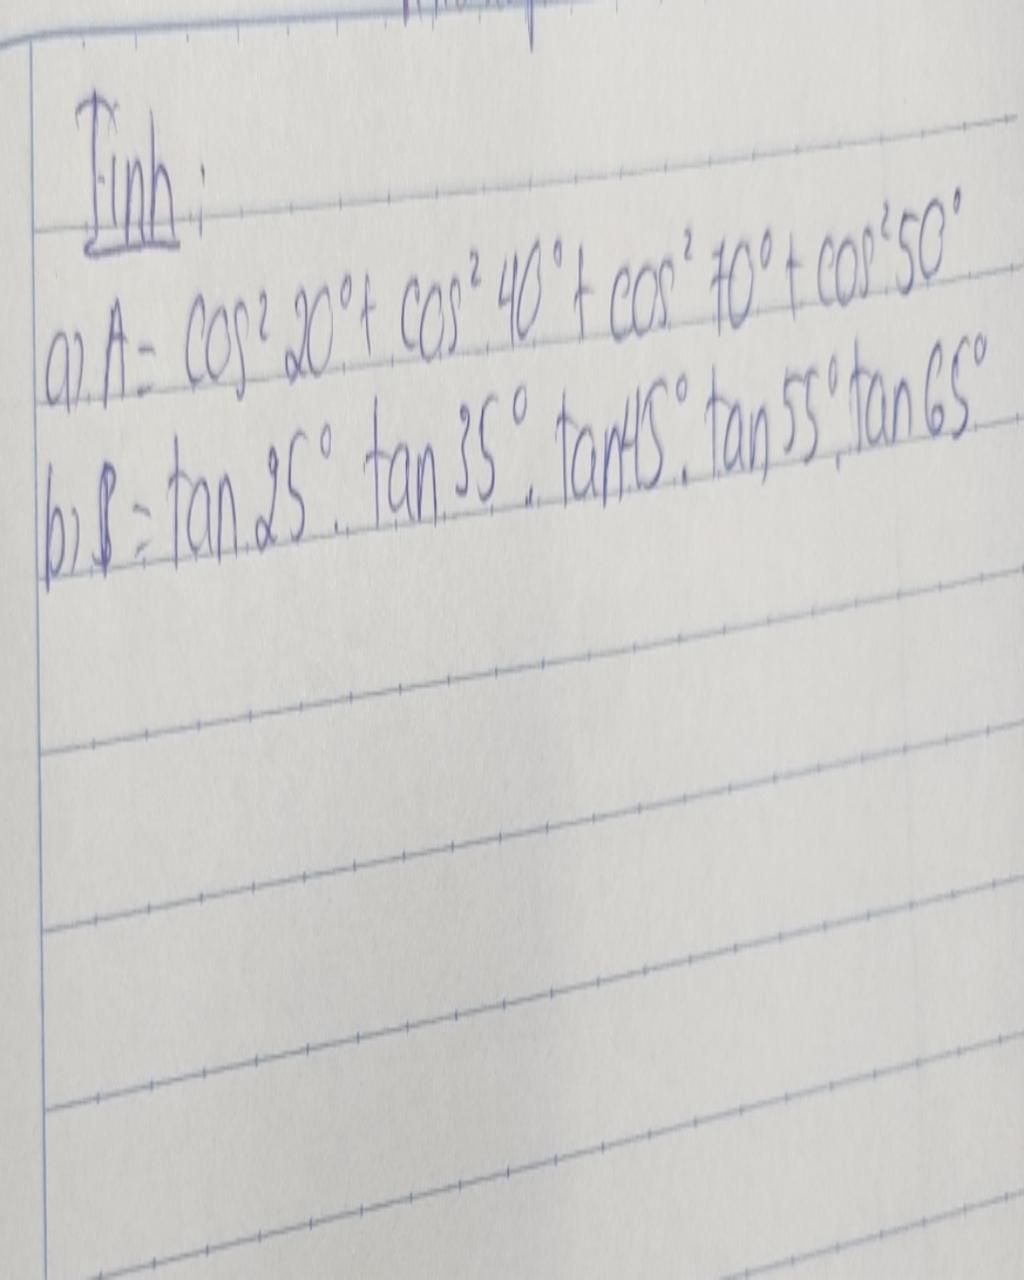 Tính:
a) A = cos² 20° + cos² 40° + cos² 70° + cos² 50°
b) B = tan 25° . tan 35° . tan 45° . tan 55° . tan 65°